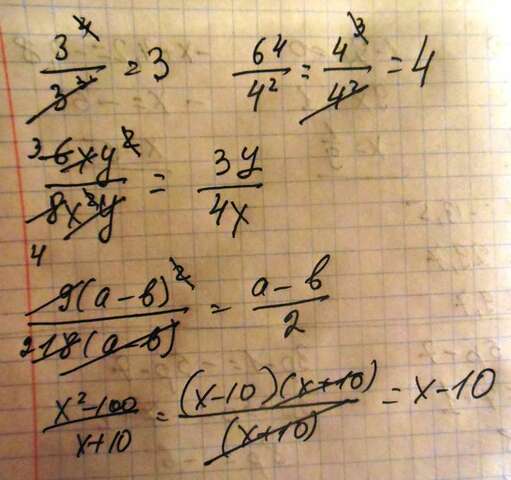 3⁴/3³ = 3   64/4² = 4³/4² = 4
3 6xy²/8x²y 4 = 3y/4x
9(a-b)²/2 18(a-b) = a-b/2
x²-100/x+10 = (x-10)(x+10)/(x+10) = x-10